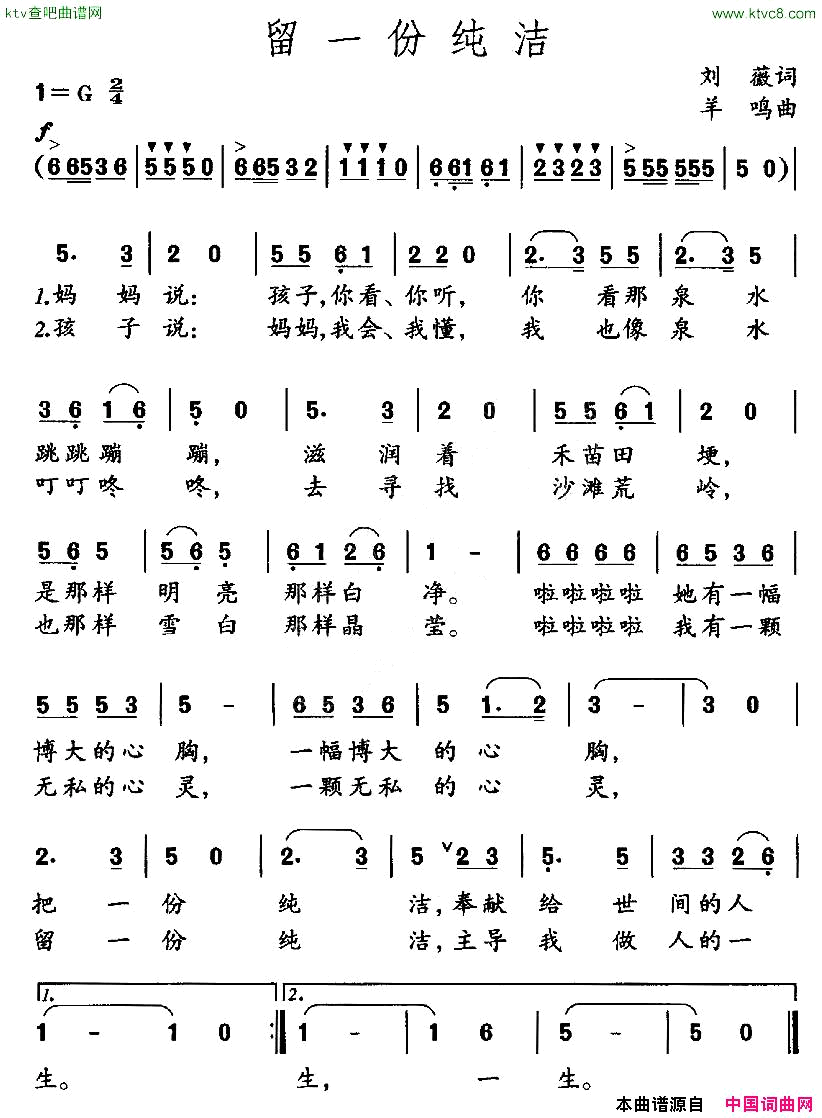 ktv查吧曲谱网
www.ktvc8.com
留一份纯洁
1=G 2/4
刘 薇词
羊 鸣曲
f
(66536 | 5550 | 66532 | 1110 | 66161 | 2323 | 555555 | 50) |
5. 3 | 2 0 | 55 61 | 22 0 | 2. 3 55 | 2. 3 5 |
1.妈 妈 说: 孩子,你看、你听, 你 看那 泉 水
2.孩 子 说: 妈妈,我会、我懂, 我 也像 泉 水
36 16 | 5 0 | 5. 3 | 2 0 | 55 61 | 2 0 |
跳跳蹦 蹦, 滋 润 着 禾苗田 埂,
叮叮咚 咚, 去 寻 找 沙滩荒 岭,
56 5 | 56 5 | 61 26 | 1 - | 66 66 | 65 36 |
是那样 明 亮 那样白 净。 啦啦啦啦 她有一幅
也那样 雪 白 那样晶 莹。 啦啦啦啦 我有一颗
55 53 | 5 - | 65 36 | 5 1. 2 | 3 - | 3 0 |
博大的心 胸, 一幅博大 的 心 胸,
无私的心 灵, 一颗无私 的 心 灵,
2. 3 | 5 0 | 2. 3 | 5 ∨ 23 | 5. 5 | 33 26 |
把 一 份 纯 洁,奉献 给 世 间的人
留 一 份 纯 洁,主导 我 做 人的一
1. 2.
1 - | 1 0 :‖ 1 - | 1 6 | 5 - | 5 0 ‖
生。 生, 一 生。
本曲谱源自 中国词曲网